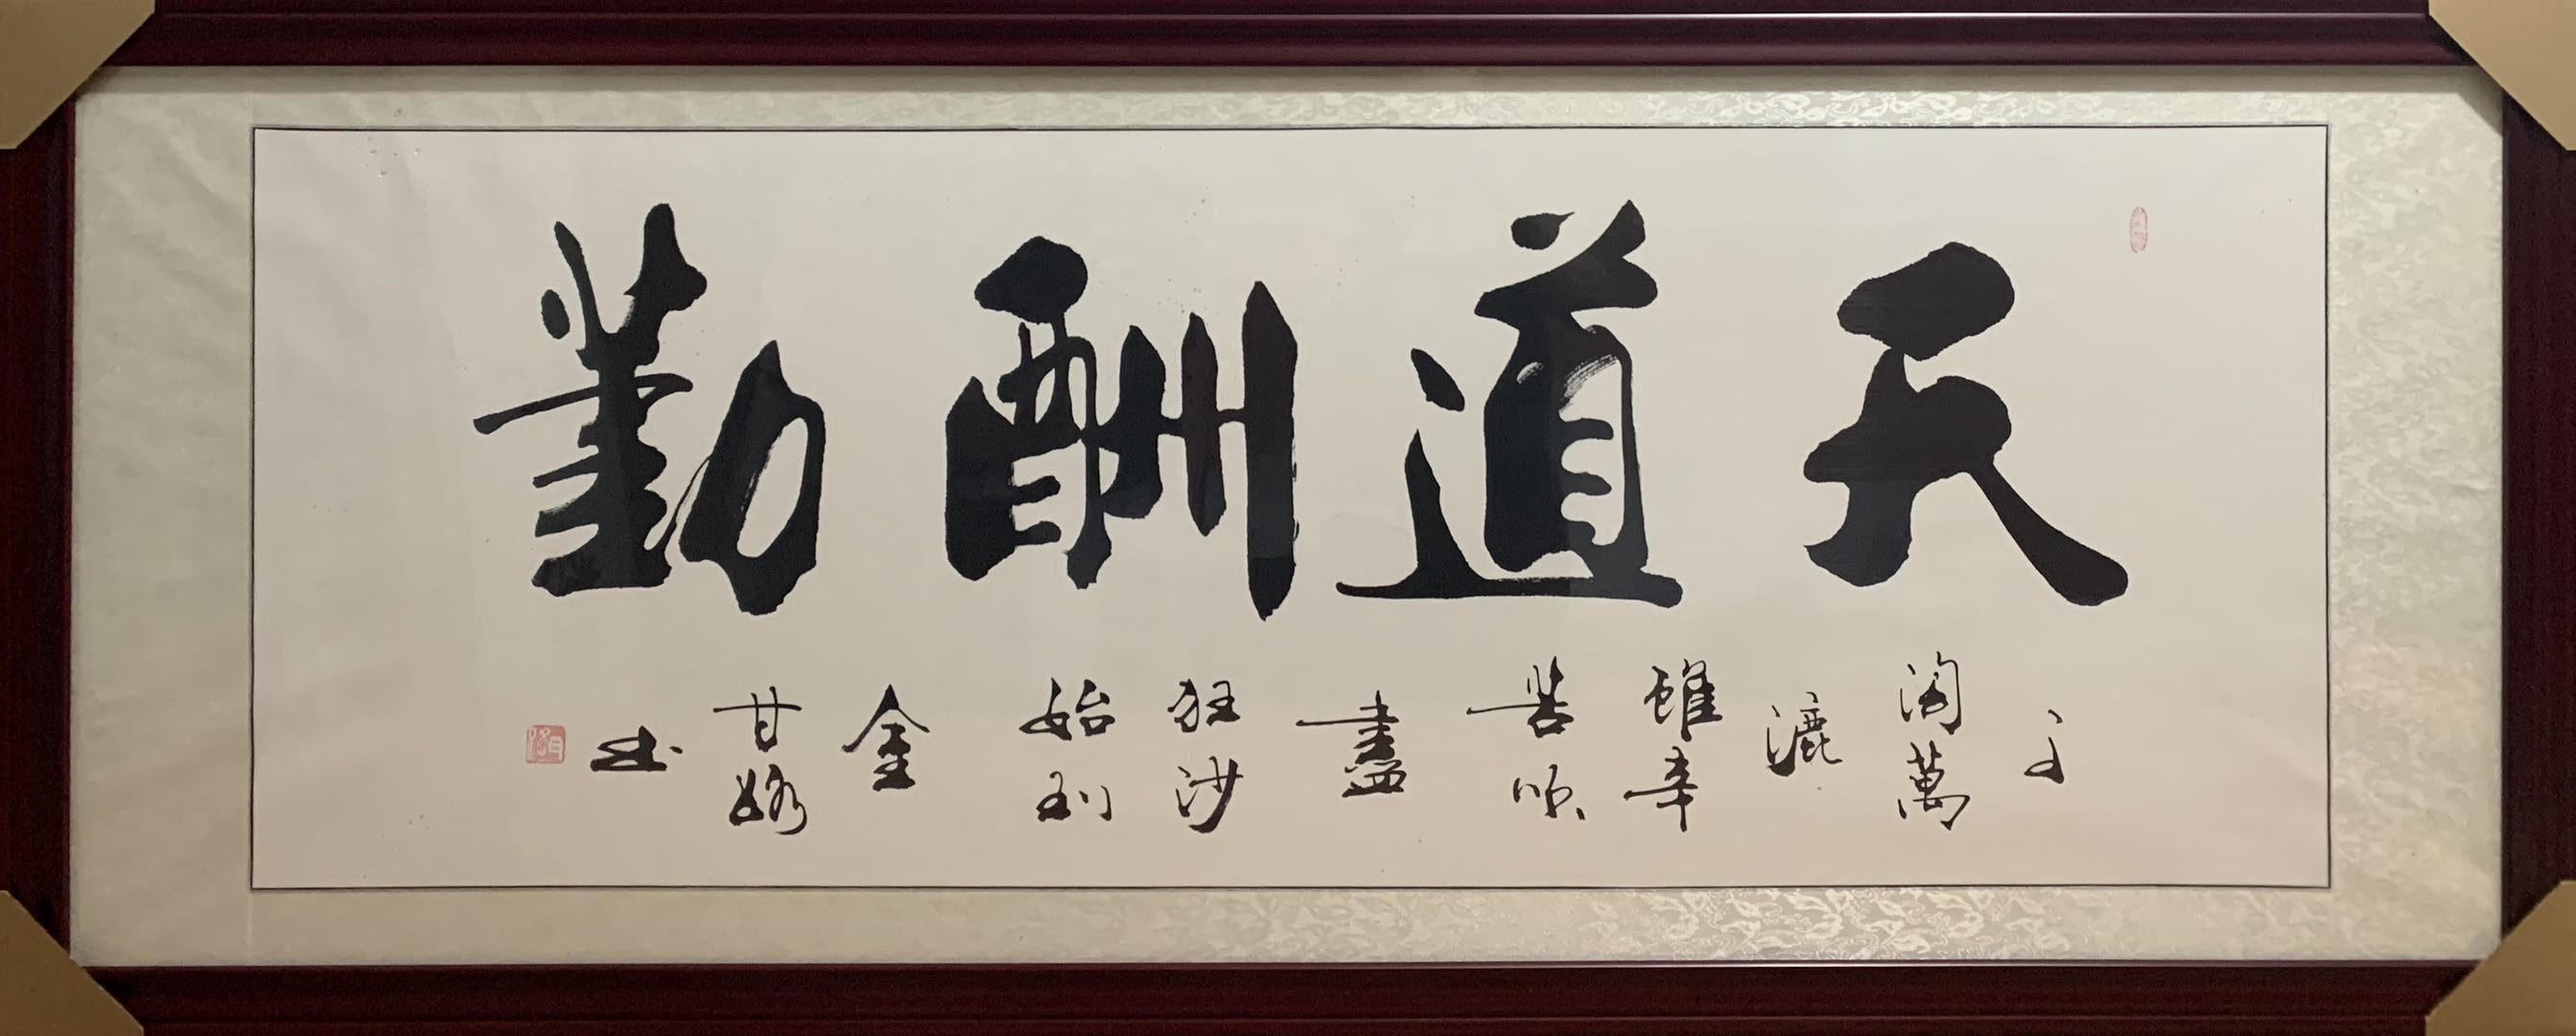 天道酬勤
千淘萬漉雖辛苦吹盡狂沙始到金
甘 书